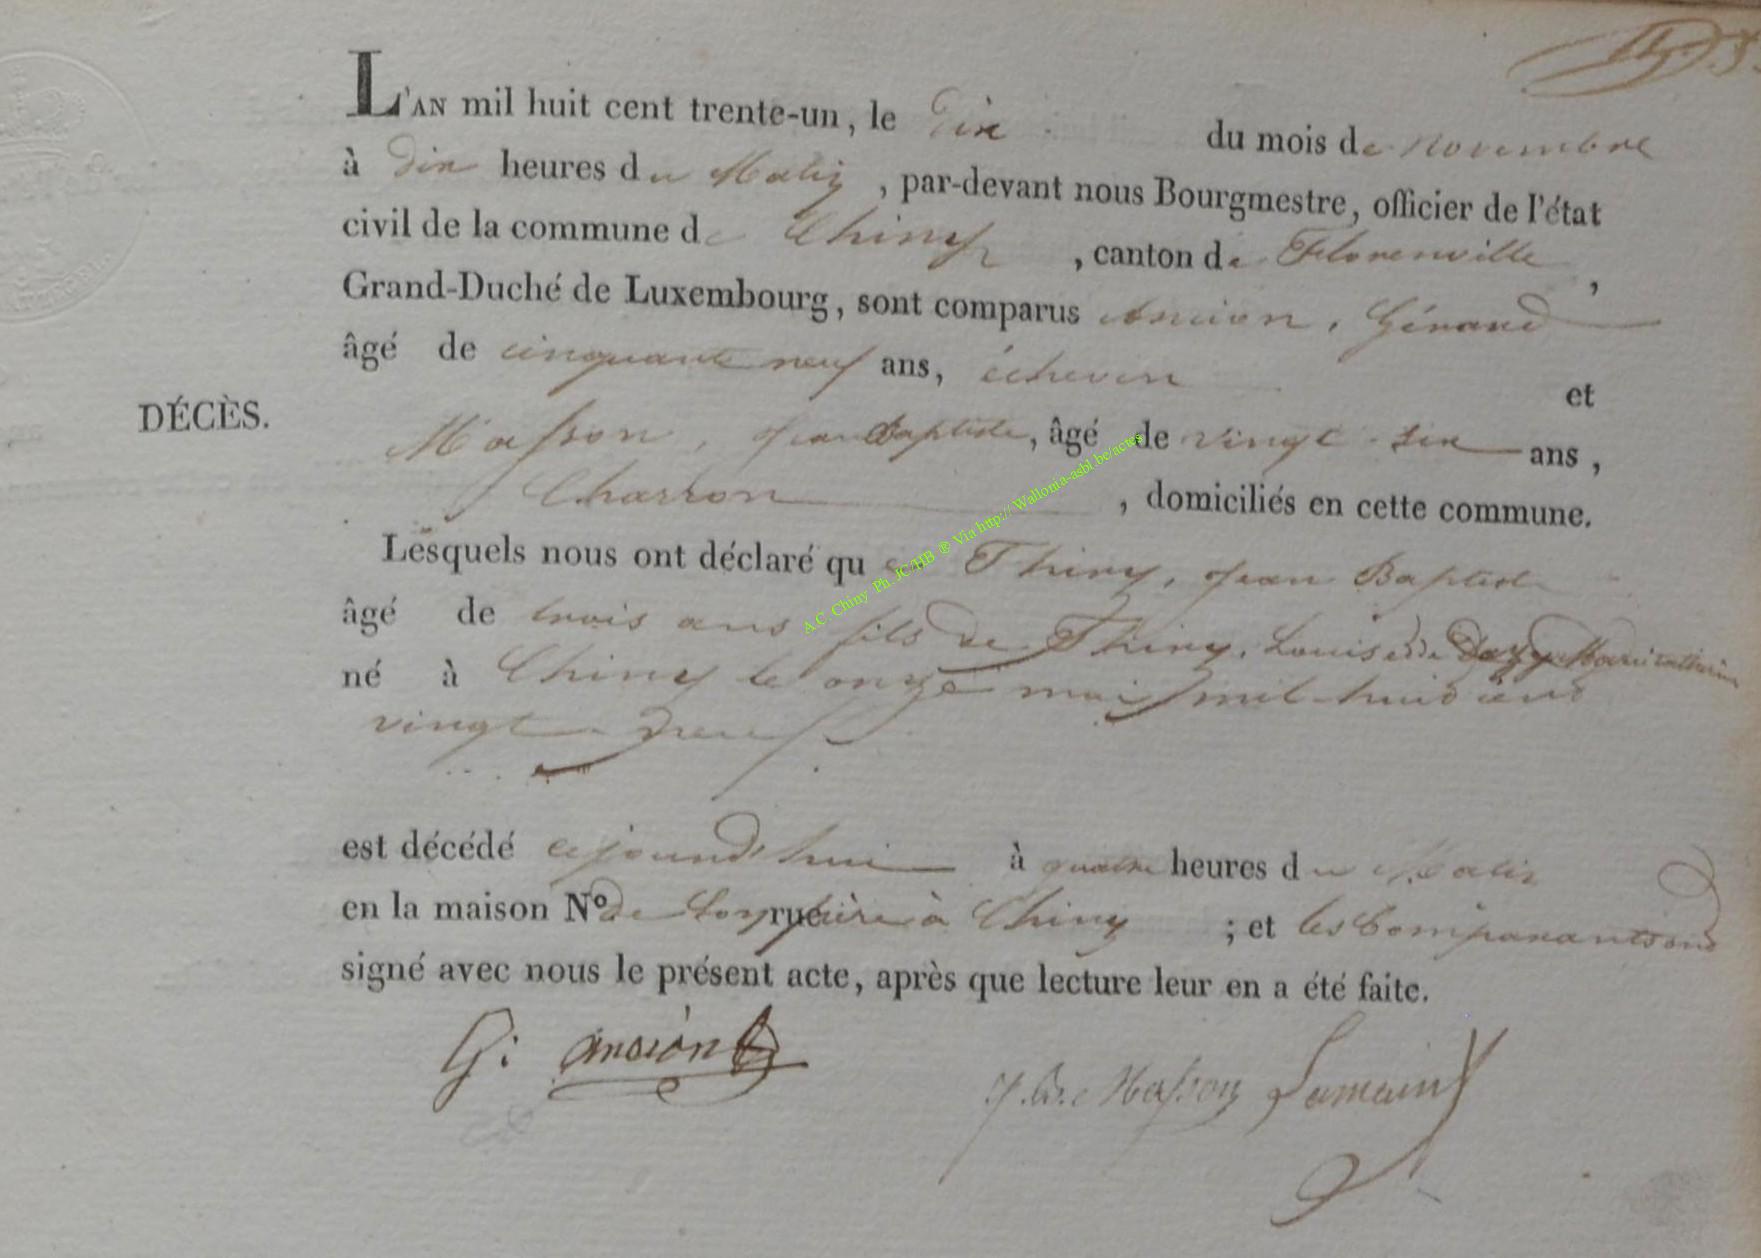 L'AN mil huit cent trente-un, le Dix du mois de novembre
à dix heures du Matin, par-devant nous Bourgmestre, officier de l'état
civil de la commune de Chiny, canton de Florenville,
Grand-Duché de Luxembourg, sont comparus Ancion, Gérard
âgé de cinquante neuf ans, échevin et
DÉCÈS.
Masson, Jean Baptiste, âgé de vingt-six ans,
Charron, domiciliés en cette commune.
Lesquels nous ont déclaré que Thiry, Jean Baptist
âgé de trois ans fils de Thiry, Louis et de Dazy Marie catherine
né à Chiny le onze mai mil-huit cent
vingt-neuf
est décédé cejourd'hui à quatre heures du Matin
en la maison N° de rue à Chiny; et les Comparants ont
signé avec nous le présent acte, après que lecture leur en a été faite.
G: ancion
J. B. Masson Lamain
A.C. Chiny Ph. JC/HB ® Via http:// Wallonia-asbl.be/actes